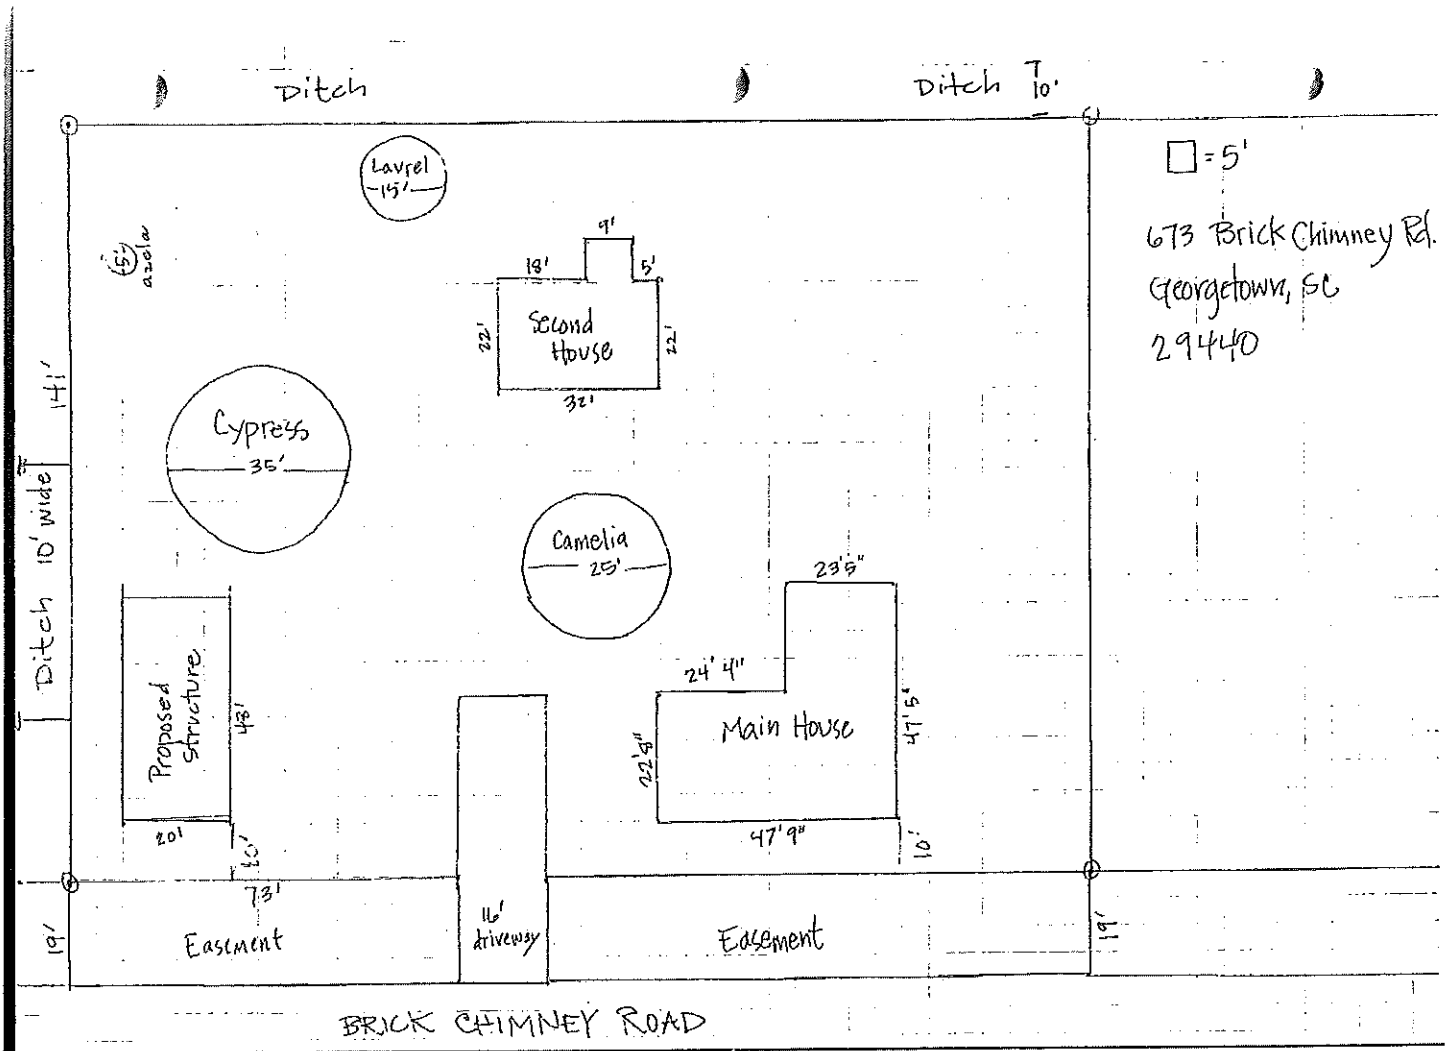 Ditch
Ditch 10'
□ = 5'
673 Brick Chimney Rd.
Georgetown, SC
29440
Laurel
15'
5'
azela
9'
18'
5'
22'
Second
House
22'
32'
141'
Cypress
35'
Ditch 10' wide
Camelia
25'
23'5"
24' 4"
Main House
22'8"
47'5"
47'9"
10'
Proposed
Structure
43'
20'
10'
73'
19'
Easement
16'
driveway
Easement
19'
BRICK CHIMNEY ROAD